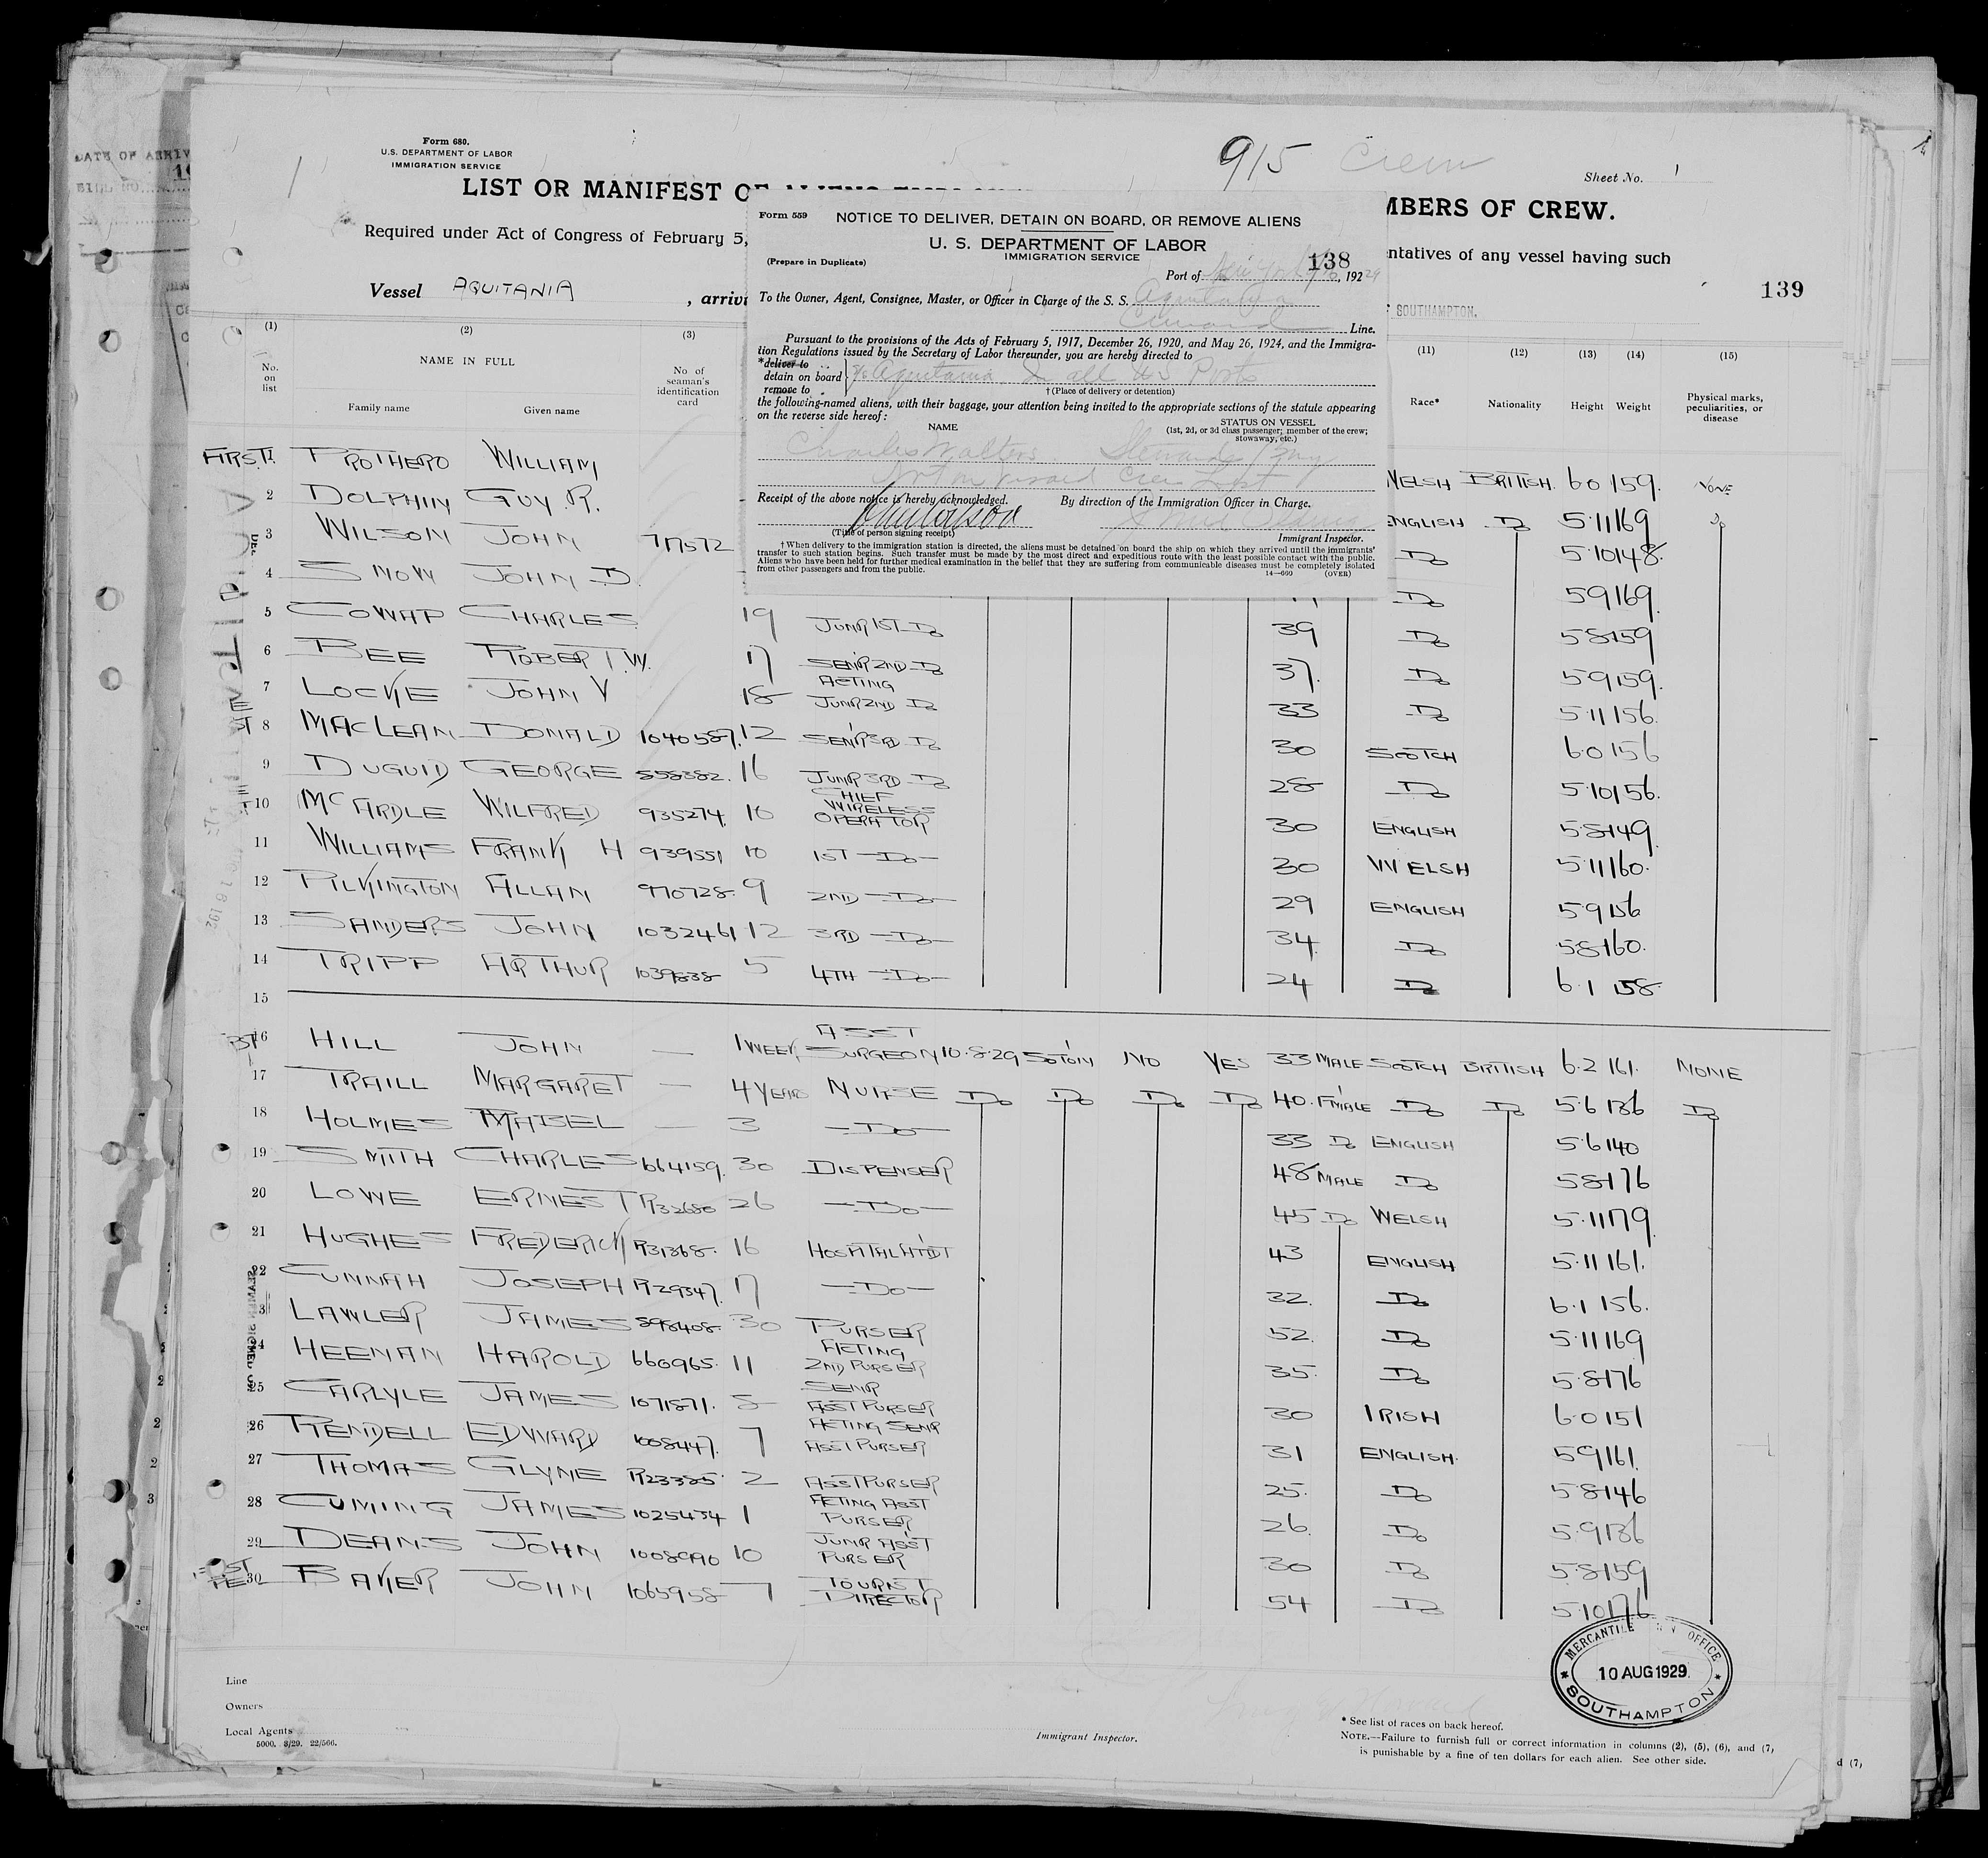 Form 680.
U.S. DEPARTMENT OF LABOR
IMMIGRATION SERVICE
915 Crew
Sheet No. 1
LIST OR MANIFEST OF
MBERS OF CREW.
Required under Act of Congress of February 5,
ntatives of any vessel having such
Vessel AQUITANIA, arrivi
SOUTHAMPTON.
139
Form 559
NOTICE TO DELIVER, DETAIN ON BOARD, OR REMOVE ALIENS
U. S. DEPARTMENT OF LABOR
IMMIGRATION SERVICE
(Prepare in Duplicate)
138
Port of New York, 192
To the Owner, Agent, Consignee, Master, or Officer in Charge of the S. S. Aquitania
Cunard Line.
Pursuant to the provisions of the Acts of February 5, 1917, December 26, 1920, and May 26, 1924, and the Immigra-
tion Regulations issued by the Secretary of Labor thereunder, you are hereby directed to
*deliver to
detain on board Aquitania all US Ports
remove to
† (Place of delivery or detention)
the following-named aliens, with their baggage, your attention being invited to the appropriate sections of the statute appearing
on the reverse side hereof:
NAME
STATUS ON VESSEL
(1st, 2d, or 3d class passenger; member of the crew;
stowaway, etc.)
Charles Walters Steward
not on Crew List
Receipt of the above notice is hereby acknowledged. By direction of the Immigration Officer in Charge.
(Title of person signing receipt)
Immigrant Inspector.
† When delivery to the immigration station is directed, the aliens must be detained on board the ship on which they arrived until the immigrants'
transfer to such station begins. Such transfer must be made by the most direct and expeditious route with the least possible contact with the public.
Aliens who have been held for further medical examination in the belief that they are suffering from communicable diseases must be completely isolated
from other passengers and from the public.
14—660 (OVER)
(1) (2) (3) (11) (12) (13) (14) (15)
No. on list
NAME IN FULL
Family name Given name
No of seaman's identification card
Race* Nationality Height Weight
Physical marks, peculiarities, or disease
FIRST 1 PROTHERO WILLIAM WELSH BRITISH 6.0 159. NONE
2 DOLPHIN GUY R. ENGLISH DO 5.11 169 DO
3 WILSON JOHN 717572 DO 5.10 148.
4 SNOW JOHN D. DO 5.9 169.
5 COWAP CHARLES 19 JUNR 1ST DO 39 DO 5.8 159
6 BEE ROBERT W. 17 SENR 2ND DO 37. DO 5.9 159.
7 LOCKE JOHN V 18 ACTING JUNR 2ND DO 33 DO 5.11 156.
8 MACLEAN DONALD 1040587. 12 SENR 3RD DO 30 SCOTCH 6.0 156
9 DUGUID GEORGE 558382. 16 JUNR 3RD DO 28 DO 5.10 156.
10 MCARDLE WILFRED 935274. 10 CHIEF WIRELESS OPERATOR 30 ENGLISH 5.8 149.
11 WILLIAMS FRANK H 939551 10 1ST DO 30 WELSH 5.11 160.
12 PILKINGTON ALLAN 970728. 9 2ND DO 29 ENGLISH 5.9 156
13 SANDERS JOHN 1032461 12 3RD DO 34. DO 5.8 160.
14 TRIPP ARTHUR 1039838 5 4TH DO 24 DO 6.1 158
15
16 HILL JOHN — 1 WEEK ASST SURGEON 10.8.29 SOTON NO YES 33 MALE SCOTCH BRITISH 6.2 161. NONE
17 TRAILL MARGARET — 4 YEARS NURSE DO DO DO DO 40. F'MALE DO DO 5.6 136 DO
18 HOLMES MABEL — 3 DO 33 DO ENGLISH 5.6 140
19 SMITH CHARLES 664159. 30 DISPENSER 48 MALE DO 5.8 176
20 LOWE ERNEST R32680 26 DO 45 DO WELSH 5.11 179.
21 HUGHES FREDERICK R31368. 16 HOSPITAL ATTDT 43 ENGLISH 5.11 161.
22 CUNNAH JOSEPH R29347. 17 DO 32. DO 6.1 156.
3 LAWLER JAMES 898408. 30 PURSER 52. DO 5.11 169
4 HEENAN HAROLD 660965. 11 ACTING 2ND PURSER 35. DO 5.8 176
25 CARLYLE JAMES 1071871. 8 SENR ASST PURSER 30 IRISH 6.0 151
26 RENDELL EDWARD 1008447. 7 ACTING SENR ASST PURSER 31 ENGLISH. 5.9 161.
27 THOMAS GLYNE R23385. 2 ASST PURSER 25. DO 5.8 146
28 CUMING JAMES 1025434 1 ACTING ASST PURSER 26. DO 5.9 136
29 DEANS JOHN 1008090 10 JUNR ASST PURSER 30 DO 5.8 159
30 BAKER JOHN 1065958 7 TOURIST DIRECTOR 54 DO 5.10 176
MERCANTILE OFFICE
10 AUG 1929
SOUTHAMPTON
Line
Owners
Local Agents
5000. 3/29. 22/566.
Immigrant Inspector.
* See list of races on back hereof.
NOTE.—Failure to furnish full or correct information in columns (2), (5), (6), and (7,
is punishable by a fine of ten dollars for each alien. See other side.
d (7,